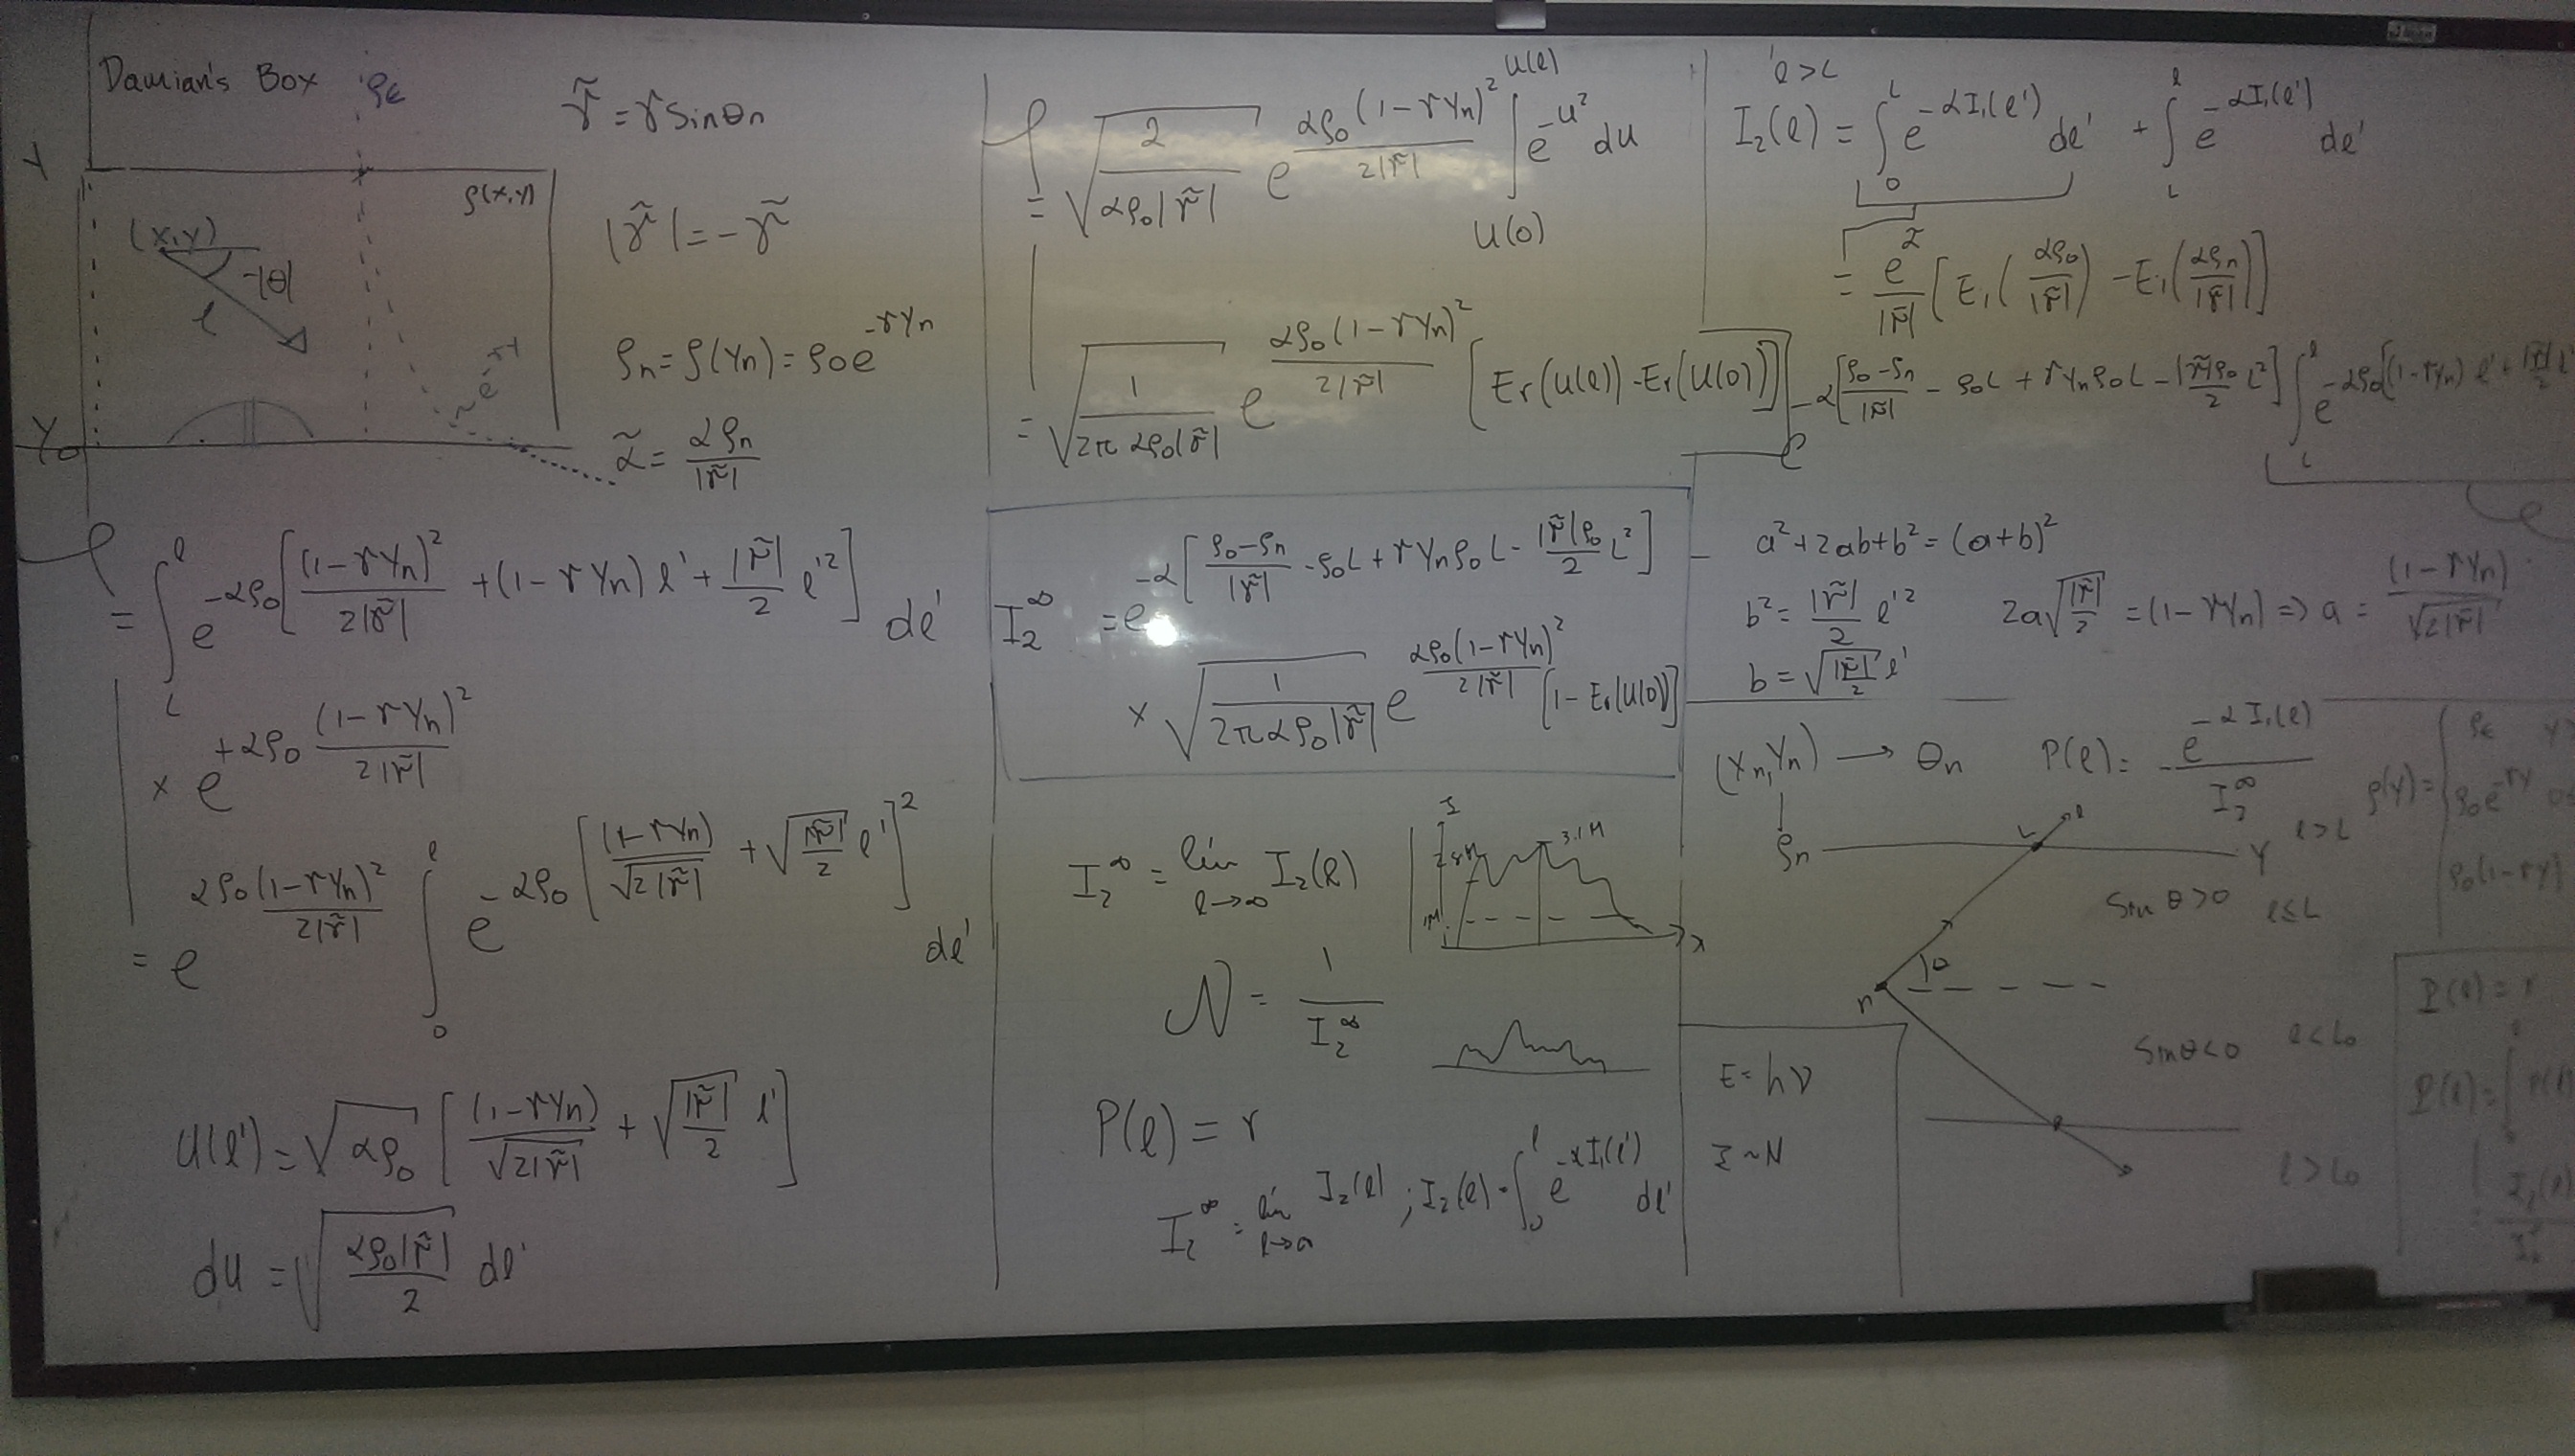 Damian's Box
ρε
Y
ρ(x,y)
(x,y)
-|θ|
l
~e^{-γY}
Y₀
γ̃ = γ sinθn
|γ̃| = -γ̃
ρn = ρ(Yn) = ρ0 e^{-γYn}
α̃ = αρn / |γ̃|
= ∫_L^l e^{-αρ0[(1-γYn)²/2|γ̃| + (1-γYn) l' + |γ̃|/2 l'²]} dl'
× e^{+αρ0 (1-γYn)²/2|γ̃|}
= e^{αρ0(1-γYn)²/2|γ̃|} ∫_0^l e^{-αρ0[(1-γYn)/√2|γ̃| + √(|γ̃|/2) l']²} dl'
U(l') = √αρ0 [(1-γYn)/√2|γ̃| + √(|γ̃|/2) l']
du = √(αρ0|γ̃|/2) dl'
= √(2/αρ0|γ̃|) e^{αρ0(1-γYn)²/2|γ̃|} ∫_{U(0)}^{U(l)} e^{-u²} du
= √(1/2π αρ0|γ̃|) e^{αρ0(1-γYn)²/2|γ̃|} [Er(U(l)) - Er(U(0))]
I₂^∞ = e^{-α[(ρ0-ρn)/|γ̃| - ρ0L + γYnρ0L - |γ̃|ρ0/2 L²]}
× √(1/2παρ0|γ̃|) e^{αρ0(1-γYn)²/2|γ̃|} [1 - Er(U(0))]
I₂^∞ = lím_{l→∞} I₂(l)
I
3.1M
1M
x
N = 1/I₂^∞
P(l) = r
I₂^∞ = lím_{l→∞} I₂(l) ; I₂(l) = ∫_0^l e^{-αI₁(l')} dl'
l > L
I₂(l) = ∫_0^L e^{-αI₁(l')} dl' + ∫_L^l e^{-αI₁(l')} dl'
= e^{α̃}/|γ̃| [E₁(αρ0/|γ̃|) - E₁(αρn/|γ̃|)]
e^{-α[(ρ0-ρn)/|γ̃| - ρ0L + γYnρ0L - |γ̃|ρ0/2 L²]} ∫_L^l e^{-αρ0[(1-γYn) l' + |γ̃|/2 l'
a² + 2ab + b² = (a+b)²
b² = |γ̃|/2 l'²
2a√(|γ̃|/2) = (1-γYn) ⇒ a = (1-γYn)/√2|γ̃|
b = √(|γ̃|/2) l'
(xn,Yn) → θn
P(l) = e^{-αI₁(l)} / I₂^∞
ρ(y) = { ρε y
ρ0e^{-γY}
ρ0(1-γY)
ρn
L
l
Y
l > L
sinθ > 0
l ≤ L
θ
n
sinθ < 0
l < L₀
l > L₀
E = hν
I ~ N
P(l) = r
P(l) = ∫
= I₂(l)